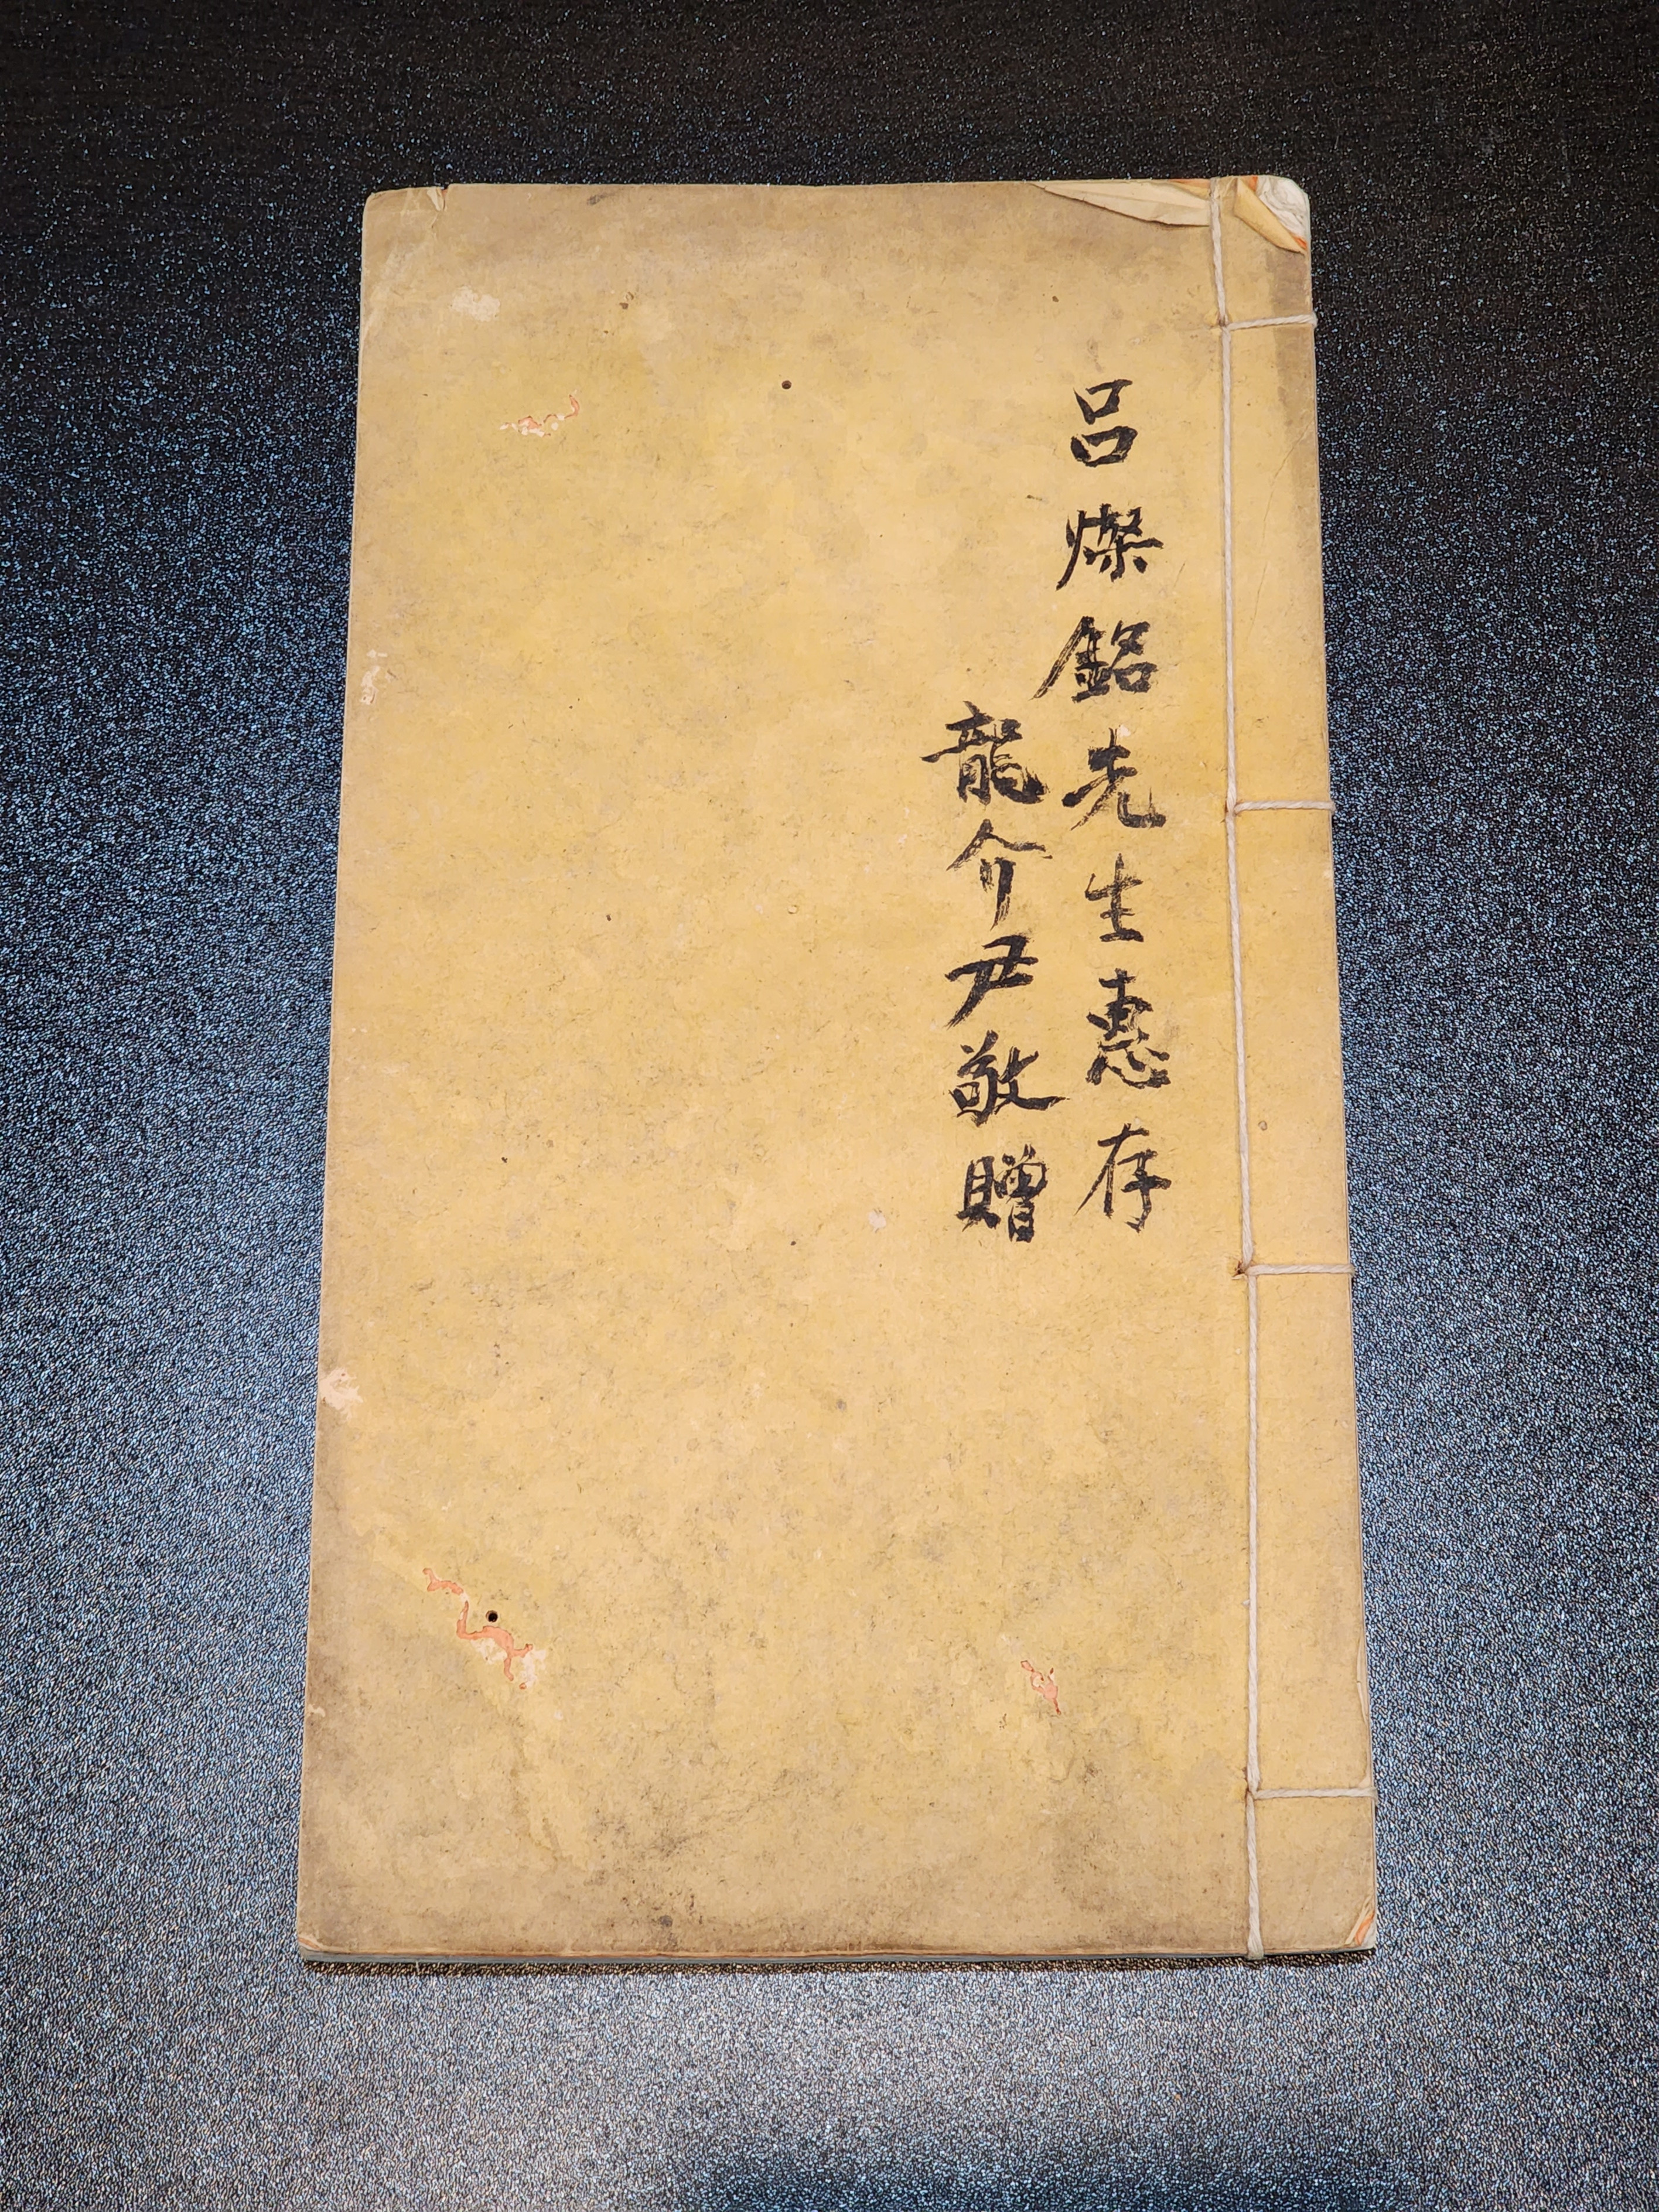 吕燦銘先生惠存
龍介尹敬贈